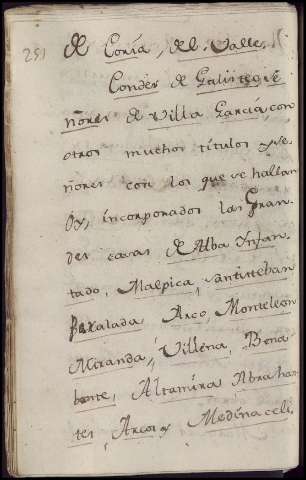 251
de Coria, del Valle,
Condes de Galisteo, se
ñores de Villa Garcia con
otros muchos titulos y se
ñores con los que se hallan
oy, incorporados las Gran
des casas de Alba Ynfan
tado, Malpica, santisteban
Peralada Arco, Monteleon
Miranda, Villena, Bena
bente, Altamira Abrahan
tes, Arcos y Medinaceli,